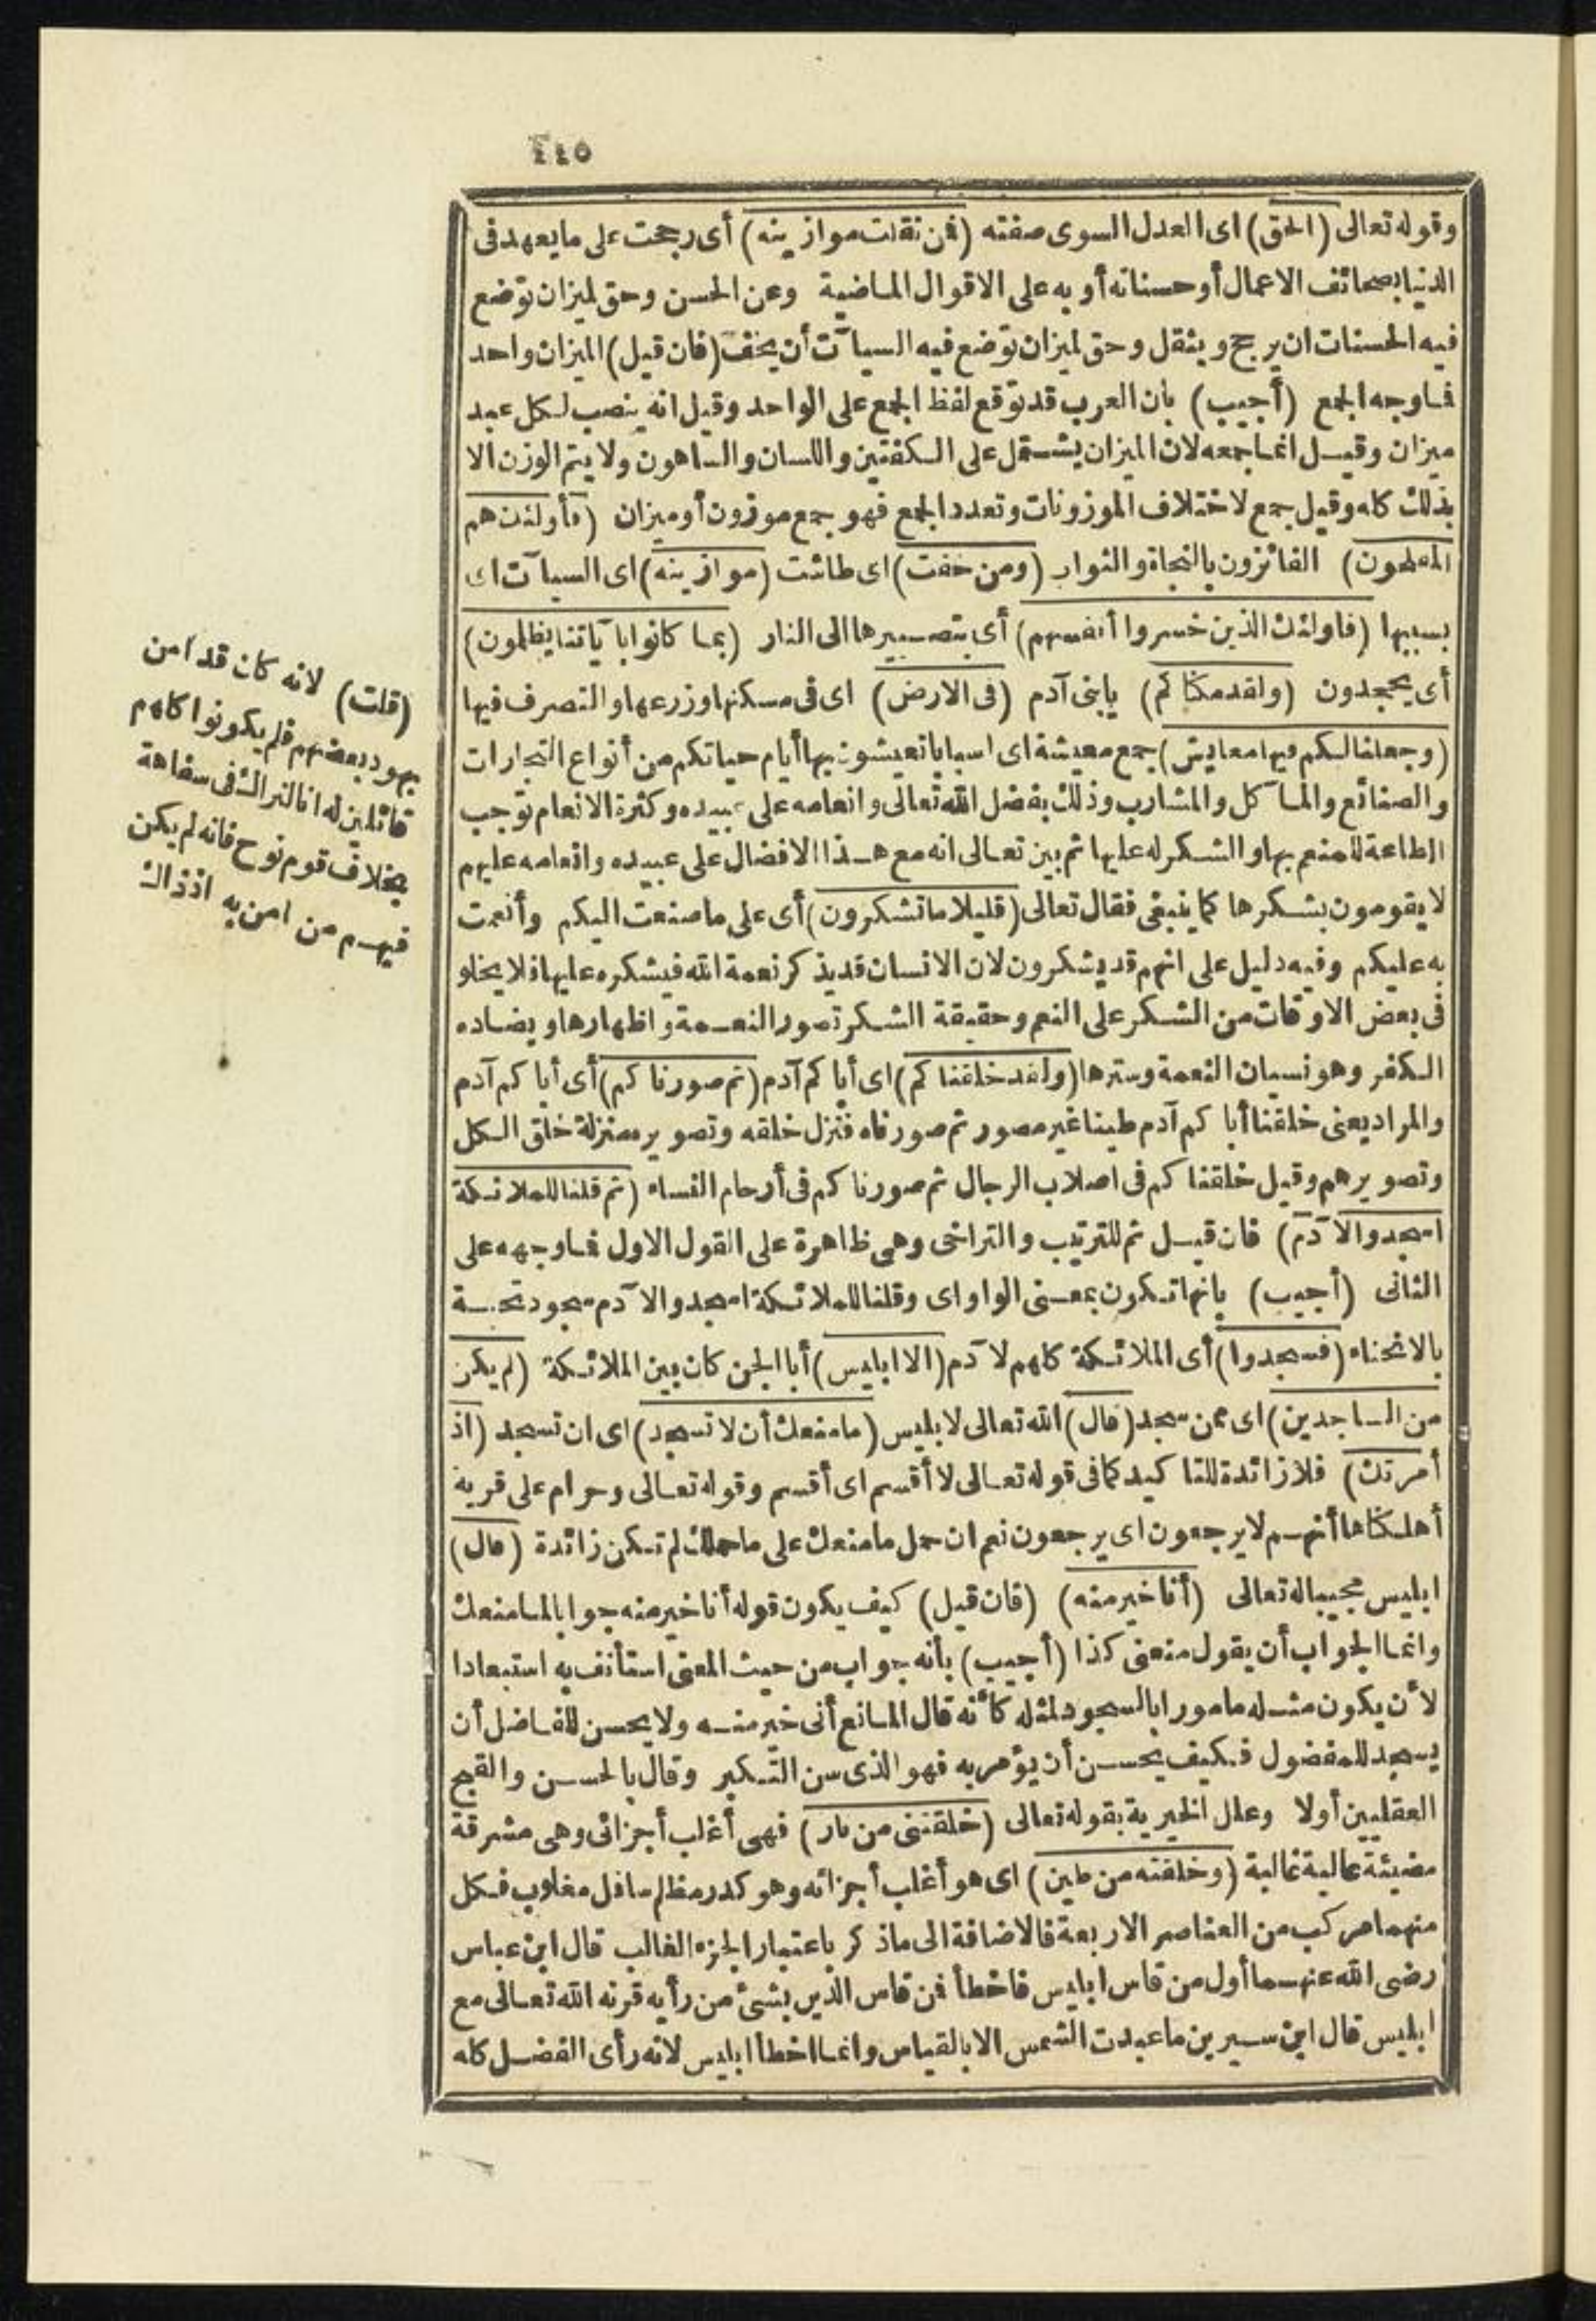 ٤٤٥
وقوله تعالى (الحق) اى العدل السوى صفته (فمن ثقلت موازينه) أى رجحت على ما يعهد فى
الدنيا بصحائف الاعمال أو حسناته أو به على الاقوال الماضية وعن الحسن وحق لميزان توضع
فيه الحسنات ان يرجح ويثقل وحق لميزان توضع فيه السيآت أن يخف (فان قيل) الميزان واحد
فما وجه الجمع (أجيب) بان العرب قد توقع لفظ الجمع على الواحد وقيل انه ينصب لكل عبد
ميزان وقيل انما جمعه لان الميزان يشتمل على الكفتين واللسان والساهون ولا يتم الوزن الا
بذلك كله وقيل جمع لاختلاف الموزونات وتعدد الجمع فهو جمع موزون أو ميزان (فأولئك هم
المفلحون) الفائزون بالنجاة والثواب (ومن خفت) اى طاشت (موازينه) اى السيآت اى
بسببها (فاولئك الذين خسروا أنفسهم) أى بتصييرها الى النار (بما كانوا بآياتنا يظلمون)
أى يجحدون (ولقد مكناكم) يابنى آدم (فى الارض) اى فى مسكنها وزرعها والتصرف فيها
(وجعلنا لكم فيها معايش) جمع معيشة اى اسبابا تعيشون بها أيام حياتكم من أنواع التجارات
والصنائع والمآكل والمشارب وذلك بفضل الله تعالى وانعامه على عبيده وكثرة الانعام توجب
الطاعة للمنعم بها والشكر له عليها ثم بين تعالى انه مع هذا الافضال على عبيده وانعامه عليهم
لا يقومون بشكرها كما ينبغى فقال تعالى (قليلا ما تشكرون) أى على ما صنعت اليكم وأنعمت
به عليكم وفيه دليل على انهم قد يشكرون لان الانسان قد يذكر نعمة الله فيشكره عليها فلا يخلو
فى بعض الاوقات من الشكر على النعم وحقيقة الشكر تصور النعمة واظهارها ويضاده
الكفر وهو نسيان النعمة وسترها (ولقد خلقناكم) اى أباكم آدم (ثم صورناكم) أى أباكم آدم
والمراد يعنى خلقنا أباكم آدم طينا غير مصور ثم صورناه فنزل خلقه وتصويره منزلة خلق الكل
وتصويرهم وقيل خلقناكم فى اصلاب الرجال ثم صورناكم فى أرحام النساء (ثم قلنا للملائكة
اسجدوا لآدم) فان قيل ثم للترتيب والتراخى وهى ظاهرة على القول الاول فما وجهه على
الثانى (أجيب) بانها تكون بمعنى الواو اى وقلنا للملائكة اسجدوا لآدم سجود تحية
بالانحناء (فسجدوا) أى الملائكة كلهم لآدم (الا ابليس) أبا الجن كان بين الملائكة (لم يكن
من الساجدين) اى ممن سجد (قال) الله تعالى لابليس (ما منعك أن لا تسجد) اى ان تسجد (اذ
أمرتك) فلا زائدة للتاكيد كما فى قوله تعالى لا أقسم اى أقسم وقوله تعالى وحرام على قرية
أهلكناها أنهم لا يرجعون اى يرجعون نعم ان حمل ما منعك على ما حملك لم تكن زائدة (قال)
ابليس مجيبا له تعالى (أنا خير منه) (فان قيل) كيف يكون قوله أنا خير منه جوابا لما منعك
وانما الجواب أن يقول منعنى كذا (أجيب) بأنه جواب من حيث المعنى استأنف به استبعادا
لأن يكون مثله مامورا بالسجود لمثله كأنه قال المانع أنى خير منه ولا يحسن للفاضل أن
يسجد للمفضول فكيف يحسن أن يؤمر به فهو الذى سن التكبر وقال بالحسن والقبح
العقليين أولا وعلل الخيرية بقوله تعالى (خلقتنى من نار) فهى أغلب أجزائى وهى مشرقة
مضيئة عالية غالبة (وخلقته من طين) اى هو أغلب أجزائه وهو كدر مظلم سافل مغلوب فكل
منهما مركب من العناصر الاربعة فالاضافة الى ما ذكر باعتبار الجزء الغالب قال ابن عباس
رضى الله عنهما أول من قاس ابليس فاخطأ فمن قاس الدين بشئ من رأيه قرنه الله تعالى مع
ابليس قال ابن سيرين ما عبدت الشمس الا بالقياس وانما اخطأ ابليس لانه رأى الفضل كله
(قلت) لانه كان قد امن
بهود بعضهم فلم يكونوا كلهم
قائلين له انا لنراك فى سفاهة
بخلاف قوم نوح فانه لم يكن
فيهم من امن به اذ ذاك